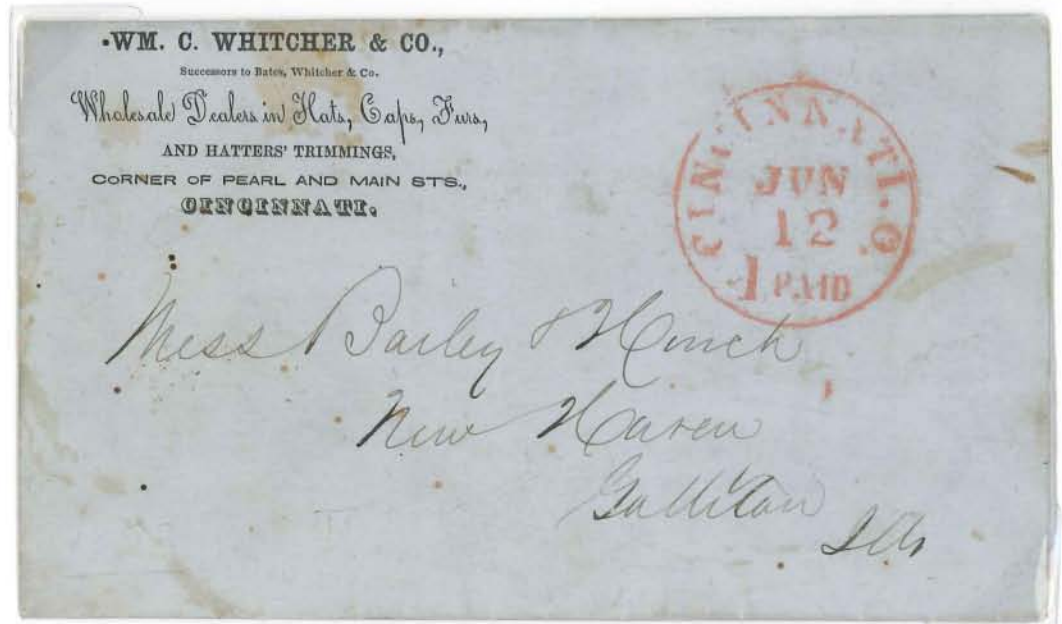 WM. C. WHITCHER & CO.,
Successors to Bates, Whitcher & Co.
Wholesale Dealers in Hats, Caps, Furs,
AND HATTERS' TRIMMINGS,
CORNER OF PEARL AND MAIN STS.,
CINCINNATI.
CINCINNATI. O.
JUN
12
1 PAID
Mess Bailey & Hinch
New Haven
Gallitan
Ills